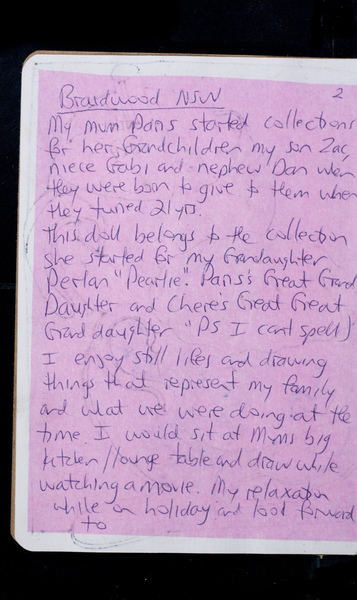 Braidwood NSW
2
My mum Paris started collections
for her Grandchildren my son Zac,
niece Gabi and nephew Dan when
they were born to give to them when
they turned 21 yrs.
This doll belongs to the collection
she started for my Grandaughter
Perlan "Pearlie". Paris's Great Grand
Daughter and Chere's Great Great
Grand daughter "(Ps I cant spell)
I enjoy still lifes and drawing
things that represent my family
and what we were doing at the
time. I would sit at Mums big
kitchen//lounge table and draw while
watching a movie. My relaxation
while on holiday and look forward
to